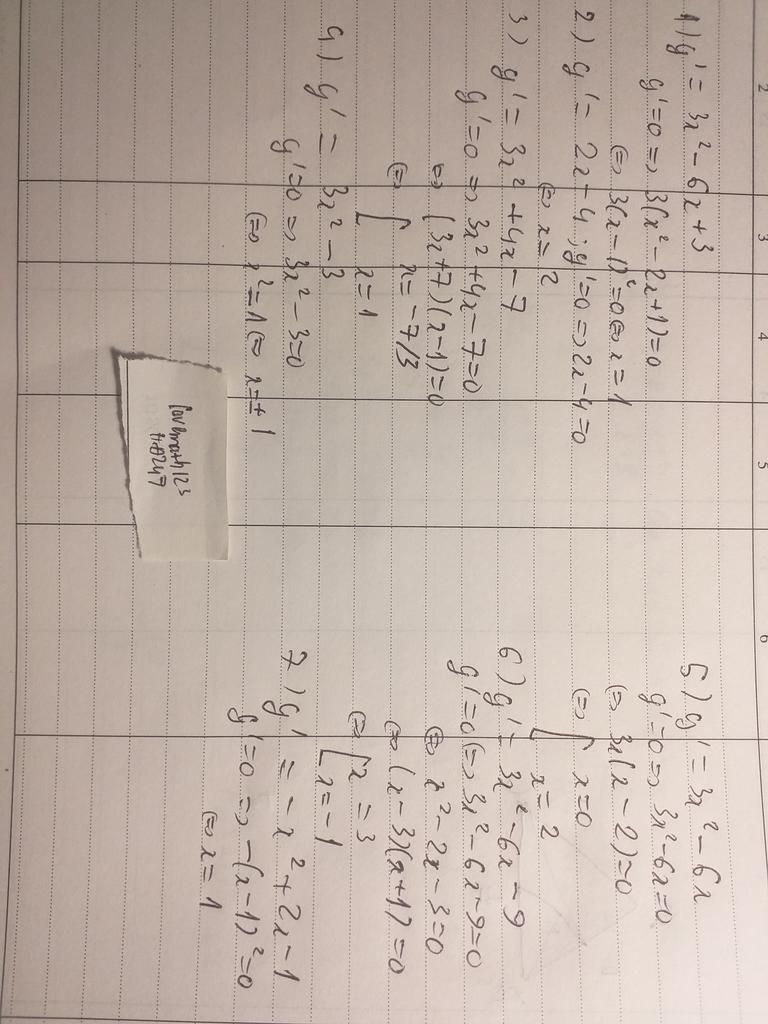 2 3 4 5 6
1) y' = 3x² - 6x + 3
y'=0 => 3(x² - 2x + 1) = 0
<=> 3(x - 1)² = 0 <=> x = 1
2) y' = 2x - 4 ; y'=0 => 2x - 4 = 0
<=> x = 2
3) y' = 3x² + 4x - 7
y'=0 => 3x² + 4x - 7 = 0
<=> (3x + 7)(x - 1) = 0
<=> [ x = -7/3
x = 1
4) y' = 3x² - 3
y'=0 => 3x² - 3 = 0
<=> x² = 1 <=> x = ± 1
5) y' = 3x² - 6x
y'=0 => 3x² - 6x = 0
<=> 3x(x - 2) = 0
<=> [ x = 0
x = 2
6) y' = 3x² - 6x - 9
y'=0 <=> 3x² - 6x - 9 = 0
<=> x² - 2x - 3 = 0
<=> (x - 3)(x + 1) = 0
<=> [ x = 3
x = -1
7) y' = -x² + 2x - 1
y'=0 => -(x - 1)² = 0
<=> x = 1